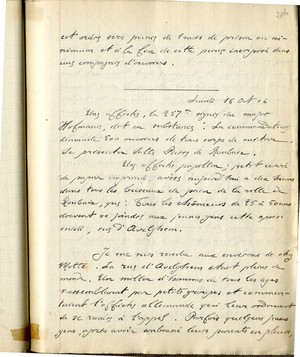 cet ordre sera puni de 1 mois de prison au mi-
nimum et à la fin de cette peine incorporé dans
une compagnie d'ouvriers.
Lundi 16 Oct 16
Une affiche, la 257e signée du major
Hofmann, dit en substance : La commandanture
demande 500 ouvriers de tous corps de métier.
Se présenter Salle Rue de
Une affiche papillon, petit carré
de papier imprimé, avise aujourd'hui à des heures
dans tous les bureaux de police de la ville de
Roubaix, que : Tous les chômeurs de 25 à 50 ans
doivent se joindre aux jeunes gens cette après
midi, rue d'Avelghem.
Je me suis rendu aux environs de chez
Motte. La rue d'Avelghem était pleine de
monde. Un millier d'hommes de tous les âges
rassemblaient par petits groupes et commen-
taient l'affiche allemande qui leur ordonnait
de se rendre à l'appel. Parfois quelques jeunes
gens, après avoir embrassé leurs parents en pleurs